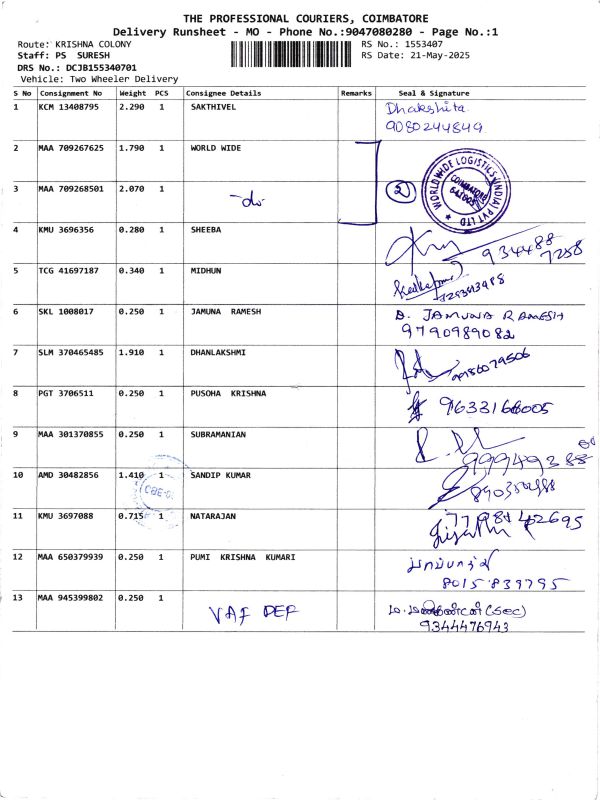 THE PROFESSIONAL COURIERS, COIMBATORE
Delivery Runsheet - MO - Phone No.:9047080280 - Page No.:1
Route: KRISHNA COLONY RS No.: 1553407
Staff: PS SURESH RS Date: 21-May-2025
DRS No.: DCJB155340701
Vehicle: Two Wheeler Delivery
S No Consignment No Weight PCS Consignee Details Remarks Seal & Signature
1 KCM 13408795 2.290 1 SAKTHIVEL Dhakshita
9080244849
2 MAA 709267625 1.790 1 WORLD WIDE
WORLD WIDE LOGISTICS (INDIA) PVT LTD
COIMBATORE
3 MAA 709268501 2.070 1 -do- 2
4 KMU 3696356 0.280 1 SHEEBA 934488
7258
5 TCG 41697187 0.340 1 MIDHUN
6 SKL 1008017 0.250 1 JAMUNA RAMESH D. JAMUNA RAMESH
9790989082
7 SLM 370465485 1.910 1 DHANLAKSHMI
8 PGT 3706511 0.250 1 PUSOHA KRISHNA 9633166005
9 MAA 301370855 0.250 1 SUBRAMANIAN
10 AMD 30482856 1.410 1 SANDIP KUMAR
11 KMU 3697088 0.715 1 NATARAJAN
12 MAA 650379939 0.250 1 PUMI KRISHNA KUMARI
8015839795
13 MAA 945399802 0.250 1 VAF DEF (Sec)
9344476943